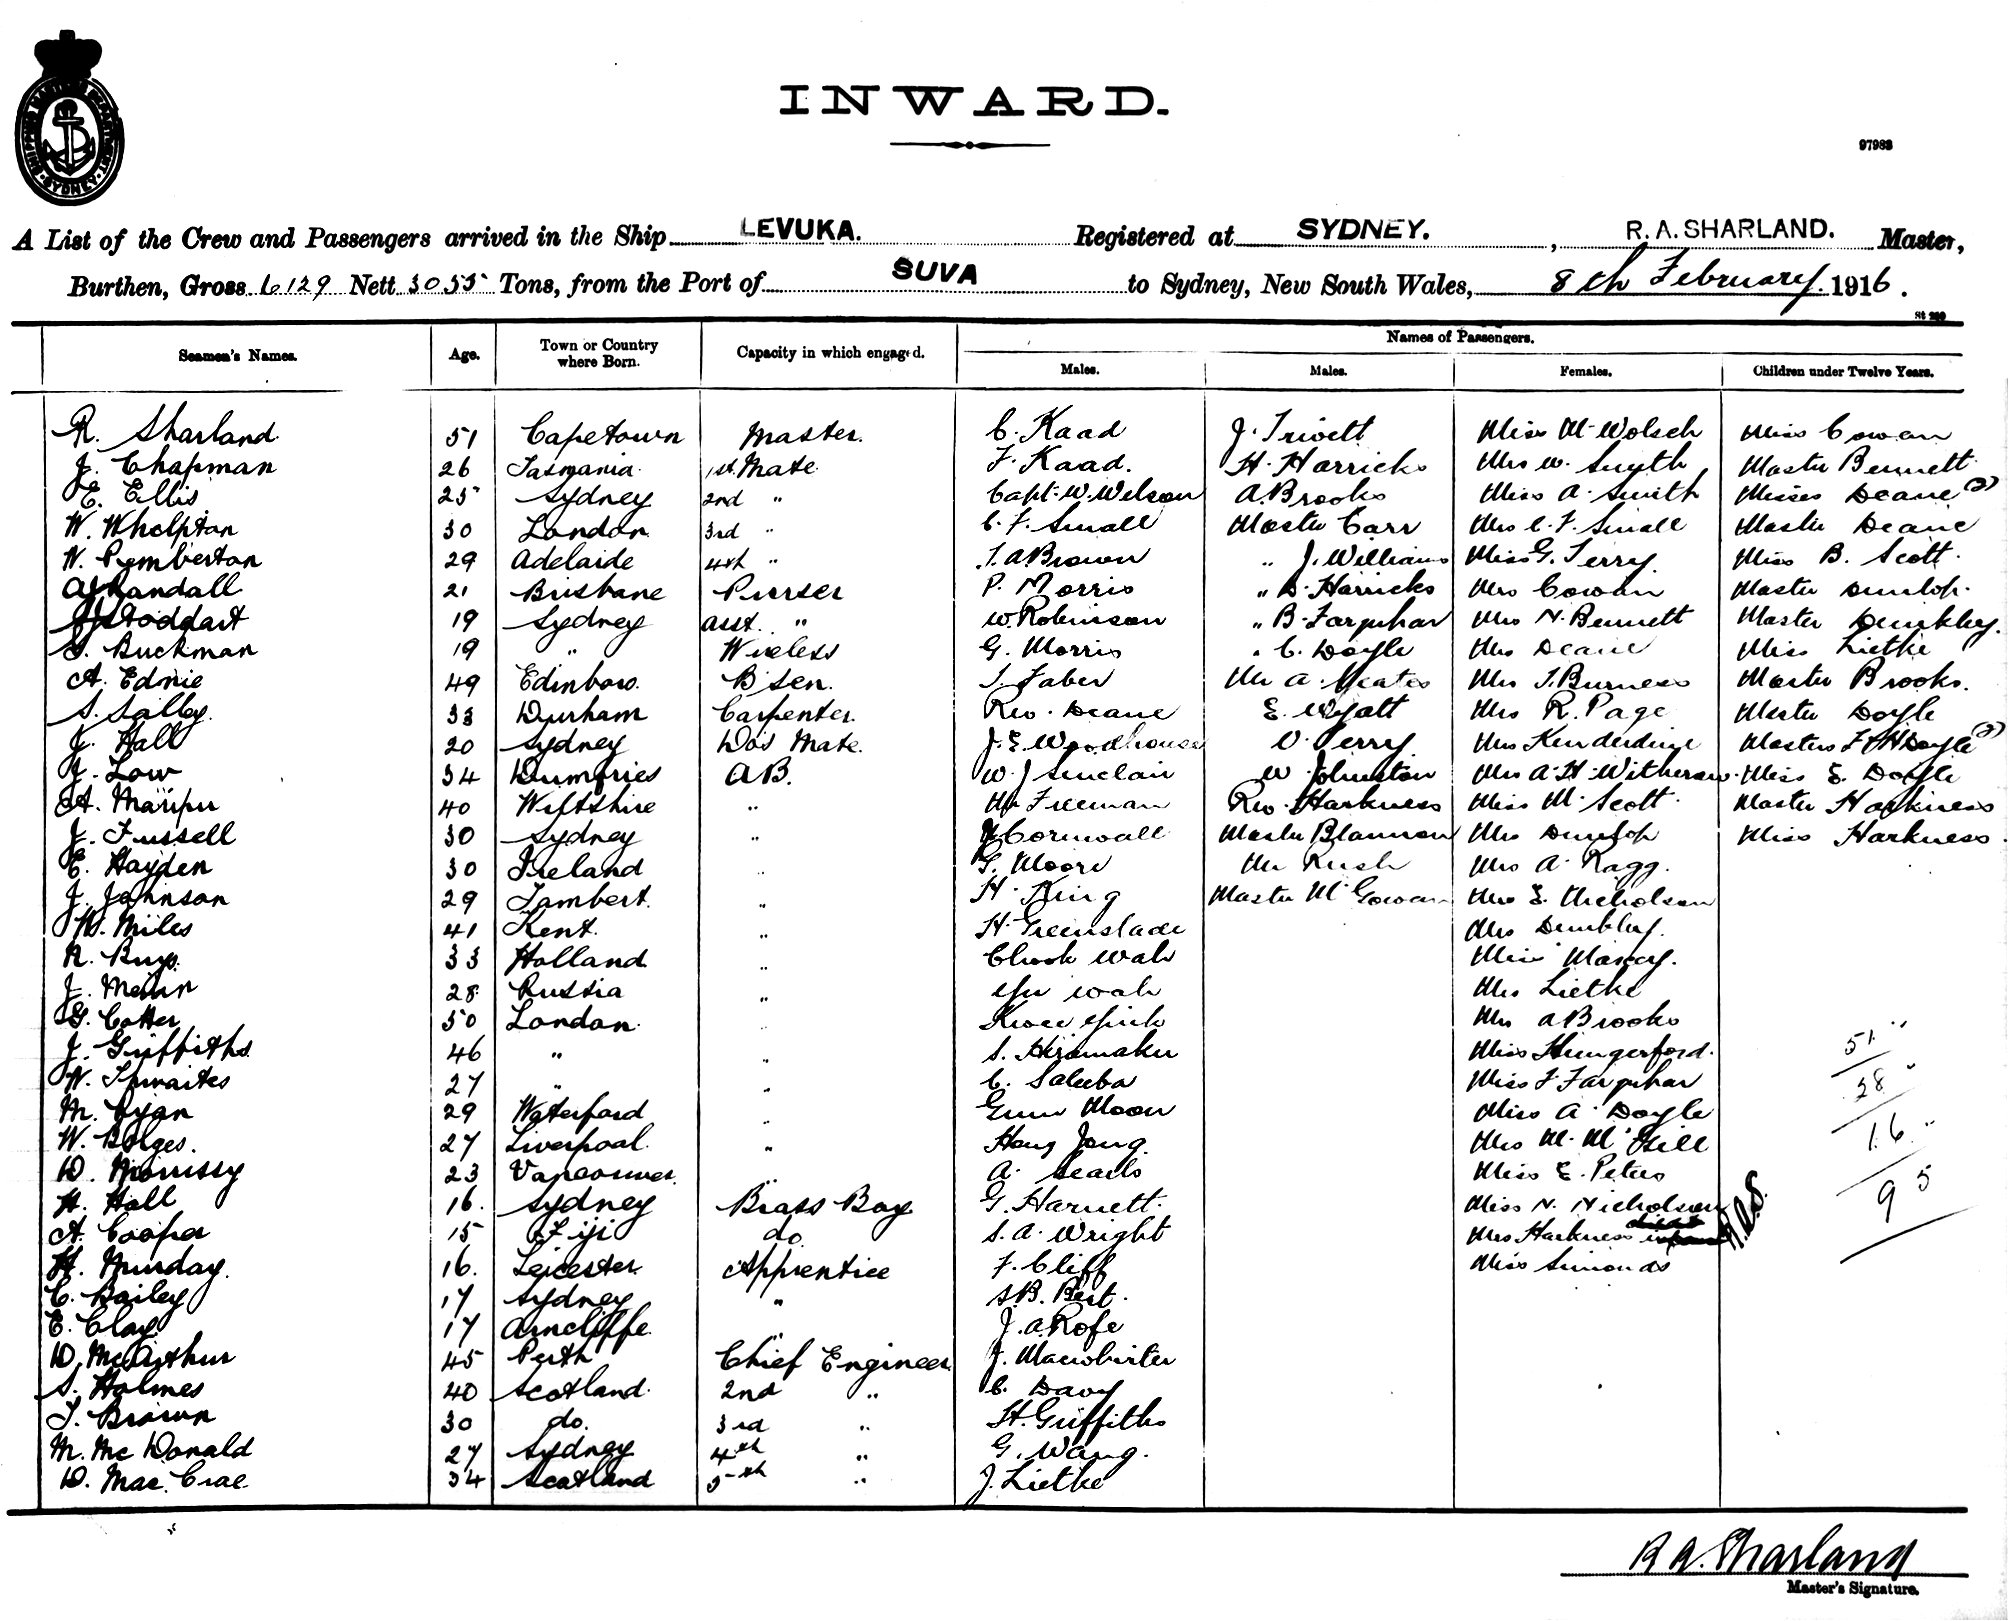 SHIPPING MASTERS DEPARTMENT · SYDNEY ·
INWARD.
97983
A List of the Crew and Passengers arrived in the Ship LEVUKA. Registered at SYDNEY. , R. A. SHARLAND. Master,
Burthen, Gross 6129 Nett 3055 Tons, from the Port of SUVA to Sydney, New South Wales, 8th February. 1916.
Seamen's Names. Age. Town or Country where Born. Capacity in which engaged. Names of Passengers.
Males. Males. Females. Children under Twelve Years.
R. Sharland 51 Capetown Master. C. Kaad J. Trivett Miss M. Wolsch Miss Cowan
J. Chapman 26 Tasmania 1st Mate F. Kaad. H. Harricks Mrs W. Smyth Master Bennett
E. Ellis 25 Sydney 2nd " Capt. W. Wilson A Brooks Miss A. Smith Misses Deane (2)
W. Whelpton 30 London 3rd " C. F. Small Master Carr Mrs C. F. Small Master Deane
W. Pemberton 29 Adelaide 4th " T. A Brown " J. Williams Miss G. Terry Miss B. Scott.
A Randall 21 Brisbane Purser P. Morris " D. Harricks Mrs Cowan Master Dunlop.
Stoddart 19 Sydney asst. " W. Robinson " B. Farquhar Mrs N. Bennett Master Dunkley.
S. Buckman 19 " Wireless G. Morris " C. Doyle Mrs Deane Miss Lietke
A. Ednie 49 Edinboro. BSen. J. Faber Mr A. Yeates Mrs T. Burness Master Brooks.
S. Salley 33 Durham Carpenter. Rev. Deane E. Wyatt Mrs R. Page Master Doyle
J. Hall 20 Sydney Do's Mate. J. E. Woodhouse V. Perry Mrs Kenderdine Masters F & H Doyle (2)
J. Low 34 Dumfries A B. W. J Sinclair W Johnston Mrs A. H. Witherow Miss E. Doyle
A. 40 Wiltshire " Mr Freeman Rev. Harkness Miss M. Scott Master Harkness
J. Fussell 30 Sydney " Cornwall Master Blannon Mrs Dunlop Miss Harkness
E. Hayden 30 Ireland " G. Moore Mr Rush Mrs A. Ragg.
J. Johnson 29 Lambert. " H. King Master McGowan Mrs E. Nicholson
W. Miles 41 Kent. " H. Greenslade Mrs Dunkley.
R. Buys. 33 Holland " Chook Wah Miss Maxey.
J. 28 Russia " Wah Mrs Lietke
G. Cotter 50 London " Mrs A Brooks
J. Griffiths 46 " " S. Hiramaku Miss Hungerford. 51 "
W. Thwaites 27 " " C. Saleeba Miss F Farquhar 28 "
M. Cyan 29 Waterford " Gum Moon Miss A. Doyle
W. Bolges. 27 Liverpool. " Hong Jong Mrs M. McGill 16 "
D. Morrissy 23 Vancouver. " A. Searls Miss E. Peters
H. Hall 16. Sydney Brass Boy G. Harnett. Miss N. Nicholson 95
A. Cooper 15 Fiji do. S. A. Wright Mrs Harkness
H. Munday 16. Leicester Apprentice F. Cliff Miss Simonds
C. Bailey 17 Sydney " S. B. Best.
E. Clay 17 Arncliffe. " J. A Rofe
D. McArthur 45 Perth Chief Engineer J. Macwhirter
S. Holmes 40 Scotland 2nd " C. Davy
T. Brown 30 do. 3rd " H. Griffiths
M. McDonald 27 Sydney 4th " G. Wang.
D. MacCrae 34 Scotland 5th " J. Lietke
R A. Sharland
Master's Signature.